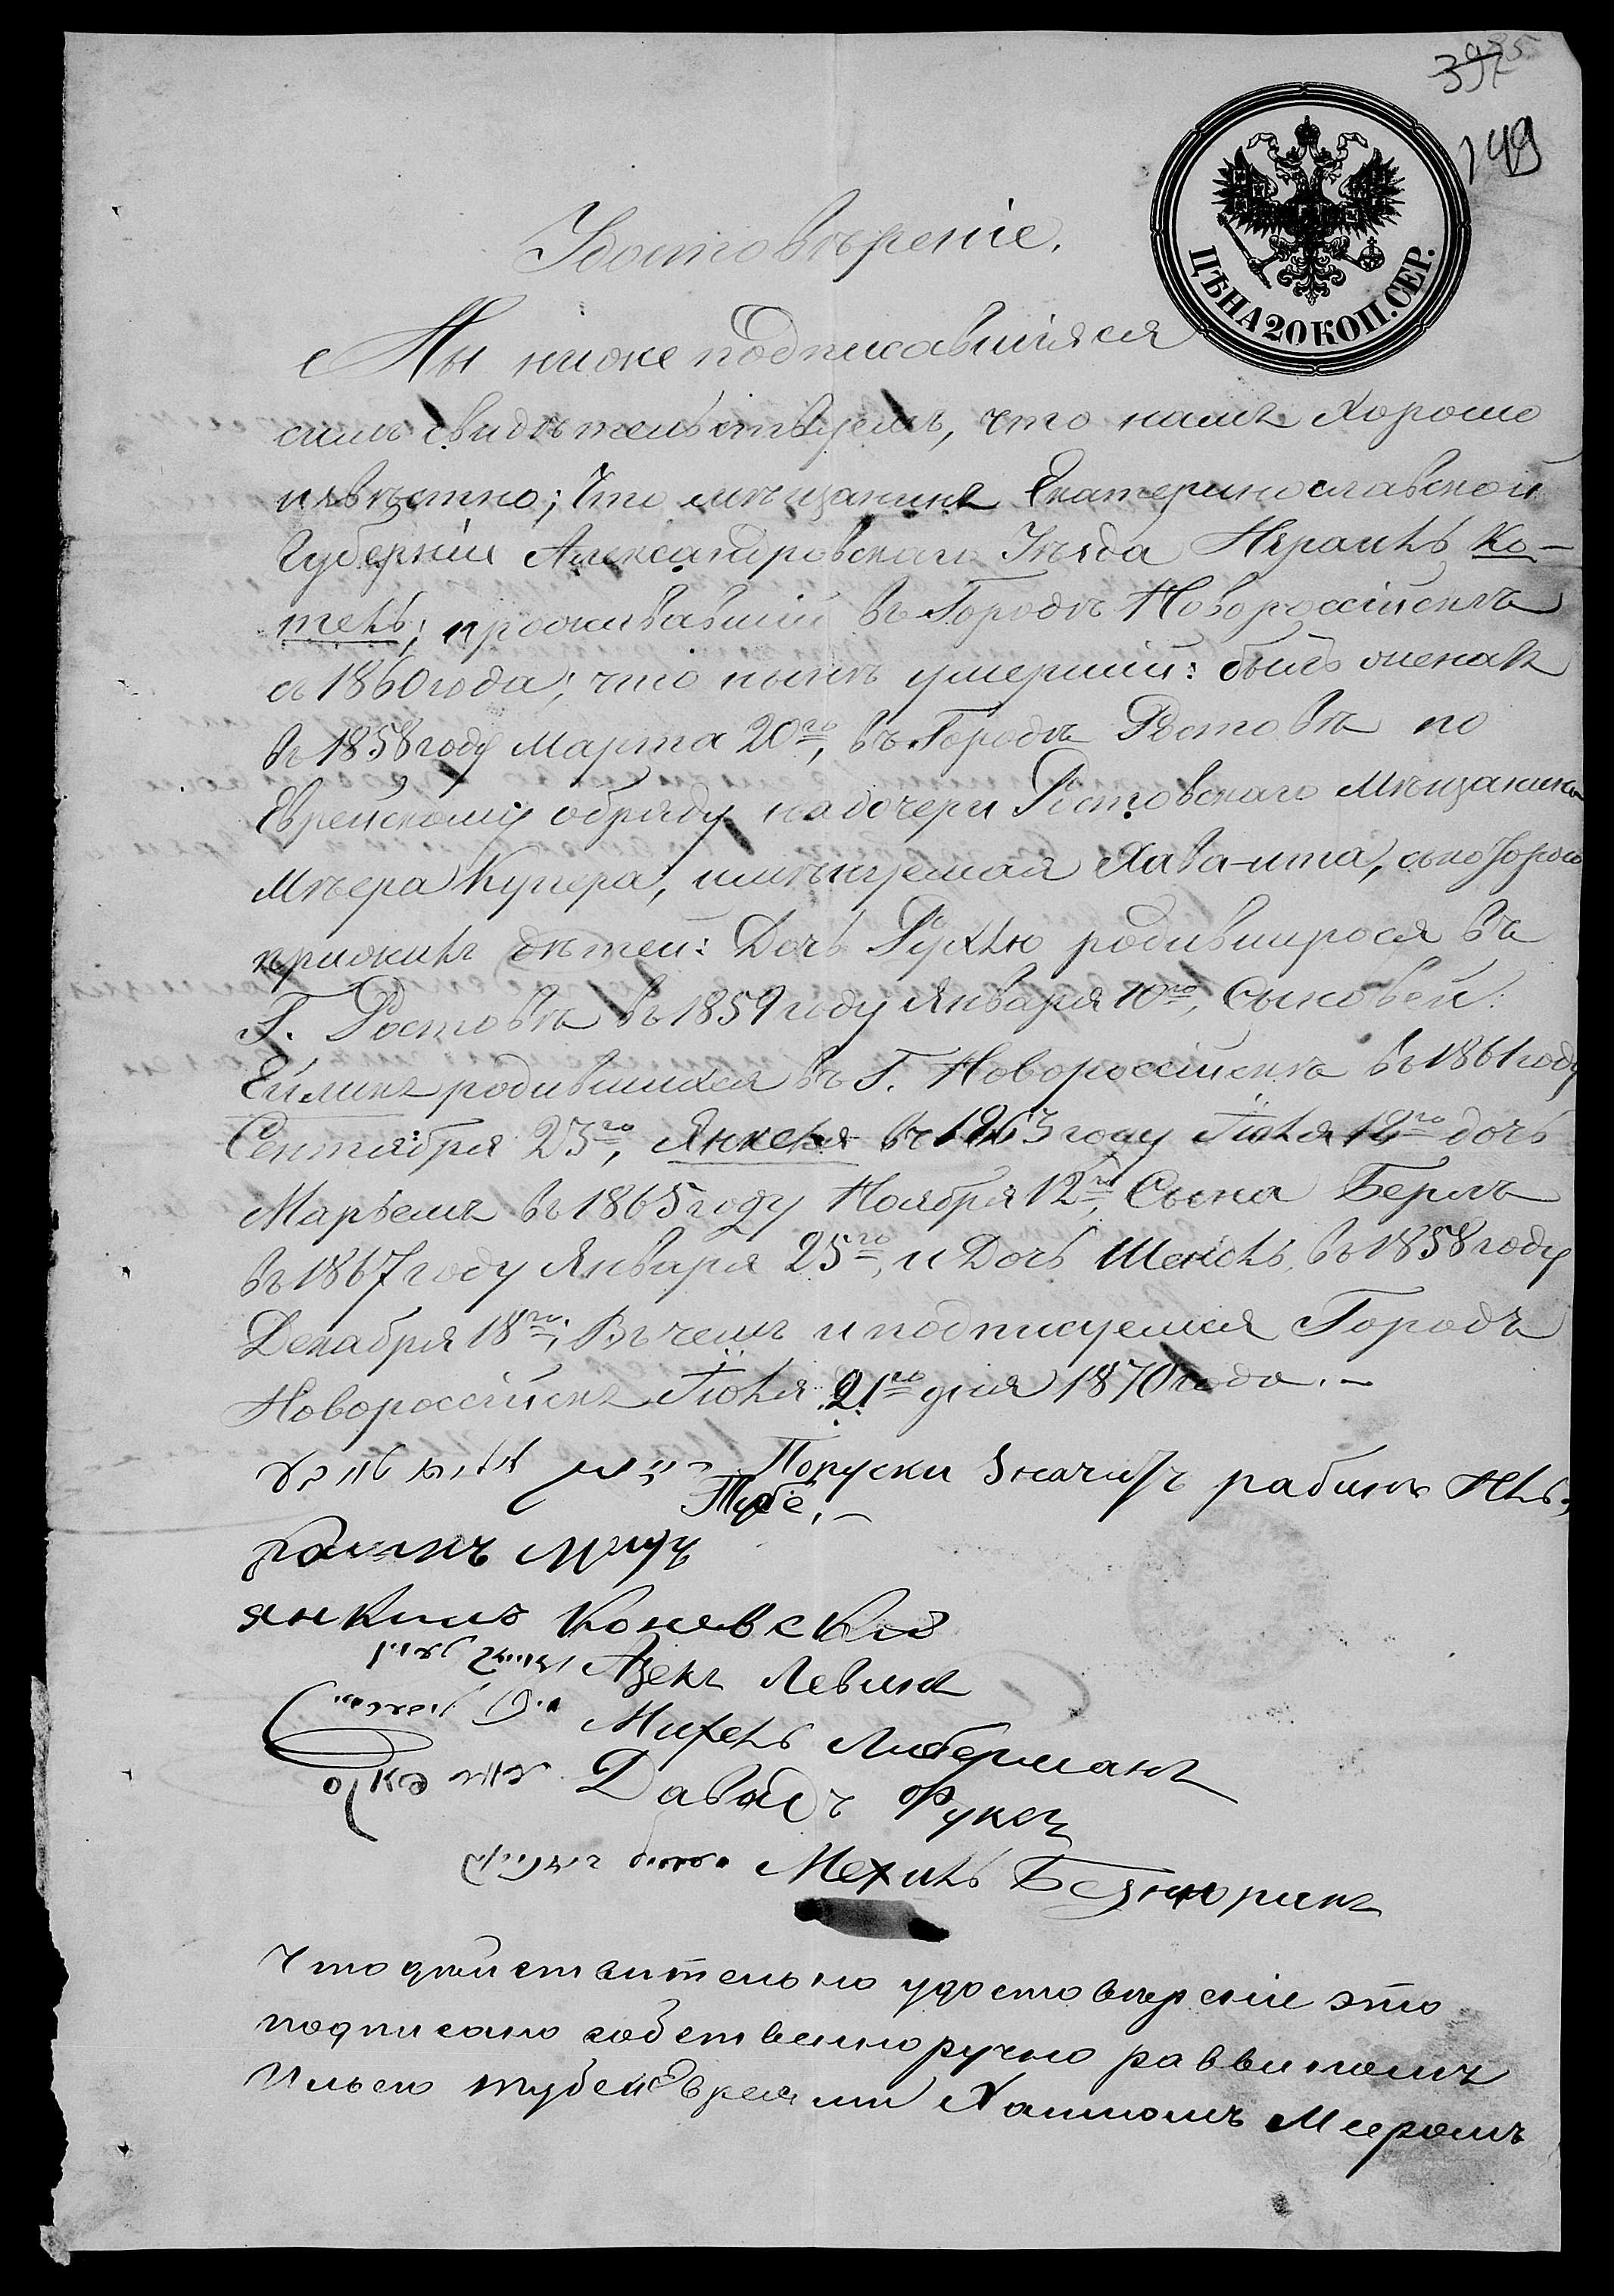 149
ЦѢНА 20 КОП. СЕР.
Удостовѣреніе.
Мы ниже подписавшіяся
симъ свидѣтельствуемъ, что намъ хорошо
извѣстно; что мѣщанинъ Екатеринославской
Губерніи Александровскаго Уѣзда Ко-
тель; проживавшій въ Городѣ Новороссійскѣ
съ 1860 года; что нынѣ умершій: былъ женатъ
въ 1858 году Марта 20го, въ Городѣ Ростовѣ по
Еврейскому обряду на дочери Ростовскаго Мѣщанина
Мѣера Купера, имѣнуемая Хава-ита, с которой
прижилъ дѣтей: Дочь Рухлю родившуюся въ
Г. Ростовѣ въ 1859 году Января 10го, Сыновей:
родившихся въ Г. Новороссійскѣ въ 1861 году
Сентября 23го, Янкеля въ 1863 году Іюля 12го дочь
Марьемъ въ 1865 году Ноября 12го, Сына Беръ
въ 1867 году Января 25го, и Дочь въ 1858 году
Декабря 18го; Въ чемъ и подписуемся Городъ
Новороссійскъ Іюля 21го дня 1870 года. —
Поруски значитъ рабинъ
Тубе. —
янкиль Коневский
Левинъ
Михель Либерманъ
Давидъ Фуксъ
Мехиль
Что дѣйствительно удостовѣреніе это
подписано собственноручно раввиномъ
Ильею Тубей Евреями Хаимомъ Мееромъ